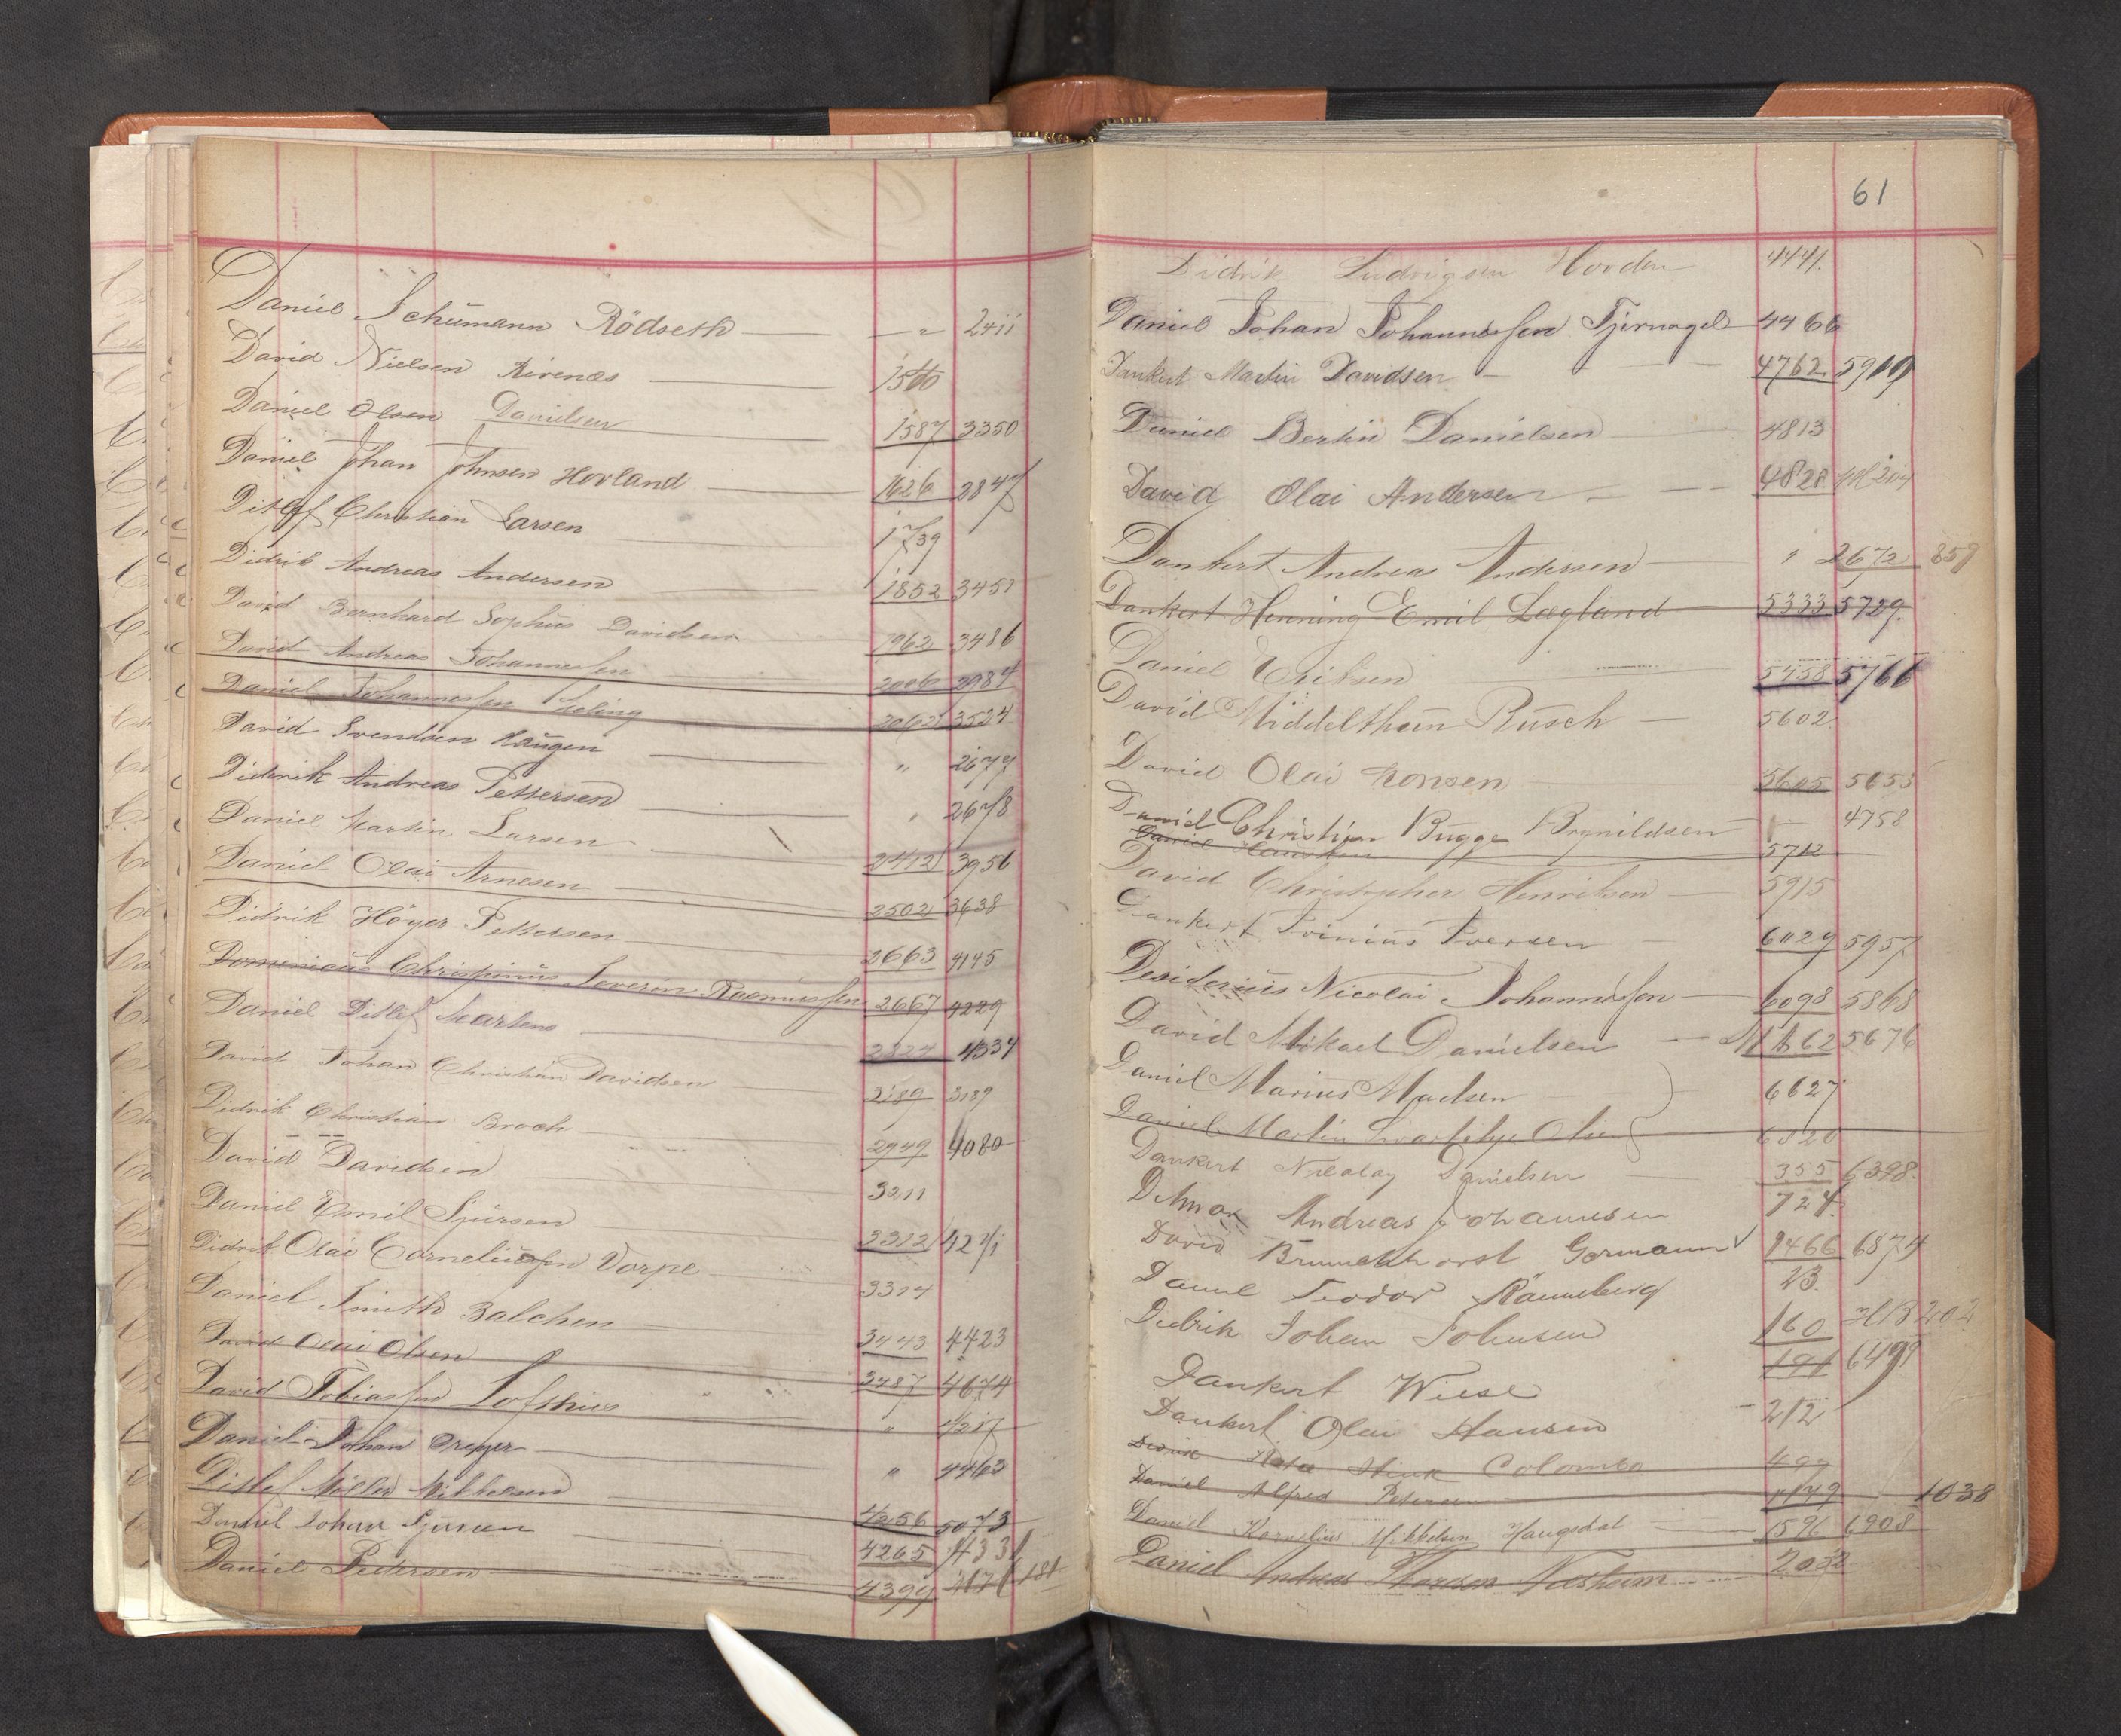 Daniel Schumann Rödseth — " 2411
David Nielsen Rivenes 1560
Daniel Olsen Danielsen 1587 3350
Daniel Johan Johnsen Hovland 1626 2847
Ditlef Christian Larsen 1739
Didrik Andreas Andersen 1852 3451
David Bernhard Sophus Davidsen 1962 3486
David Andreas Johannessen 2006 2984
Daniel Johannessen 2062 3524
David Svendsen Haugen " 2677
Diderik Andreas Pettersen " 2678
Daniel Martin Larsen 2412 3956
Daniel Olai Arnesen 2502 3638
Didrik Höyer Pettersen 2663 4145
Domenicus Chrispinus Severin Rasmussen 2667 4229
Daniel Ditlef Martens 2824 4534
David Johan Christian Davidsen 3189
Didrik Christian Broch 2949 4080
David Davidsen 3211
Daniel Emil Sjursen 3312
Didrik Olai Corneliussen Vorpe
Daniel Smith Balchen 3314
David Olai Olsen 3443 4423
David Tobiassen Lofthus 3487 4674
Daniel Johan Dreyer " 4217
Ditlef Möller Mikkelsen " 4463
Daniel Johan Sjursen 4256 5073
Daniel Pedersen 4265 4331
4399
61
Didrik Ludvigsen Hordan 4441.
Daniel Johan Johannessen Fjernagel 4466
Dankert Martin Davidsen 4762
Daniel Bertin Danielsen 4813
David Olai Andersen 4828
Dankert Andreas Andersen " 2672 859
Dankert Henning Emil Lægland 5333 5729.
Daniel Eriksen 5458 5766
David Middelthun Rusch 5602
David Olai Monsen 5605 5653
David Christian Bugge Brynildsen 4758
Daniel 5712
David Christopher Henriksen 5915
Dankert Iversen 6029 5957
Desiderius Nicolai Johannessen 6098 5868
David Mikael Danielsen 5676
Daniel Marius Madsen 6627
Daniel Martin Olsen 6320
Dankert Nicolay Danielsen 355 6398.
Detmar Andreas Johannesen 724.
David Brunchhorst Gormann 1466 6874
Daniel Teodor Rånneberg 23.
Didrik Johan Johnsen 160
Dankert Wiese 191 6499
Dankert Olai Hansen 212
Colombo 499
Daniel Alfred Petersen 1038
Daniel Kornelius Mikkelsen Haugsdal 1596 6908
Daniel Andreas Thorsen Næsheim